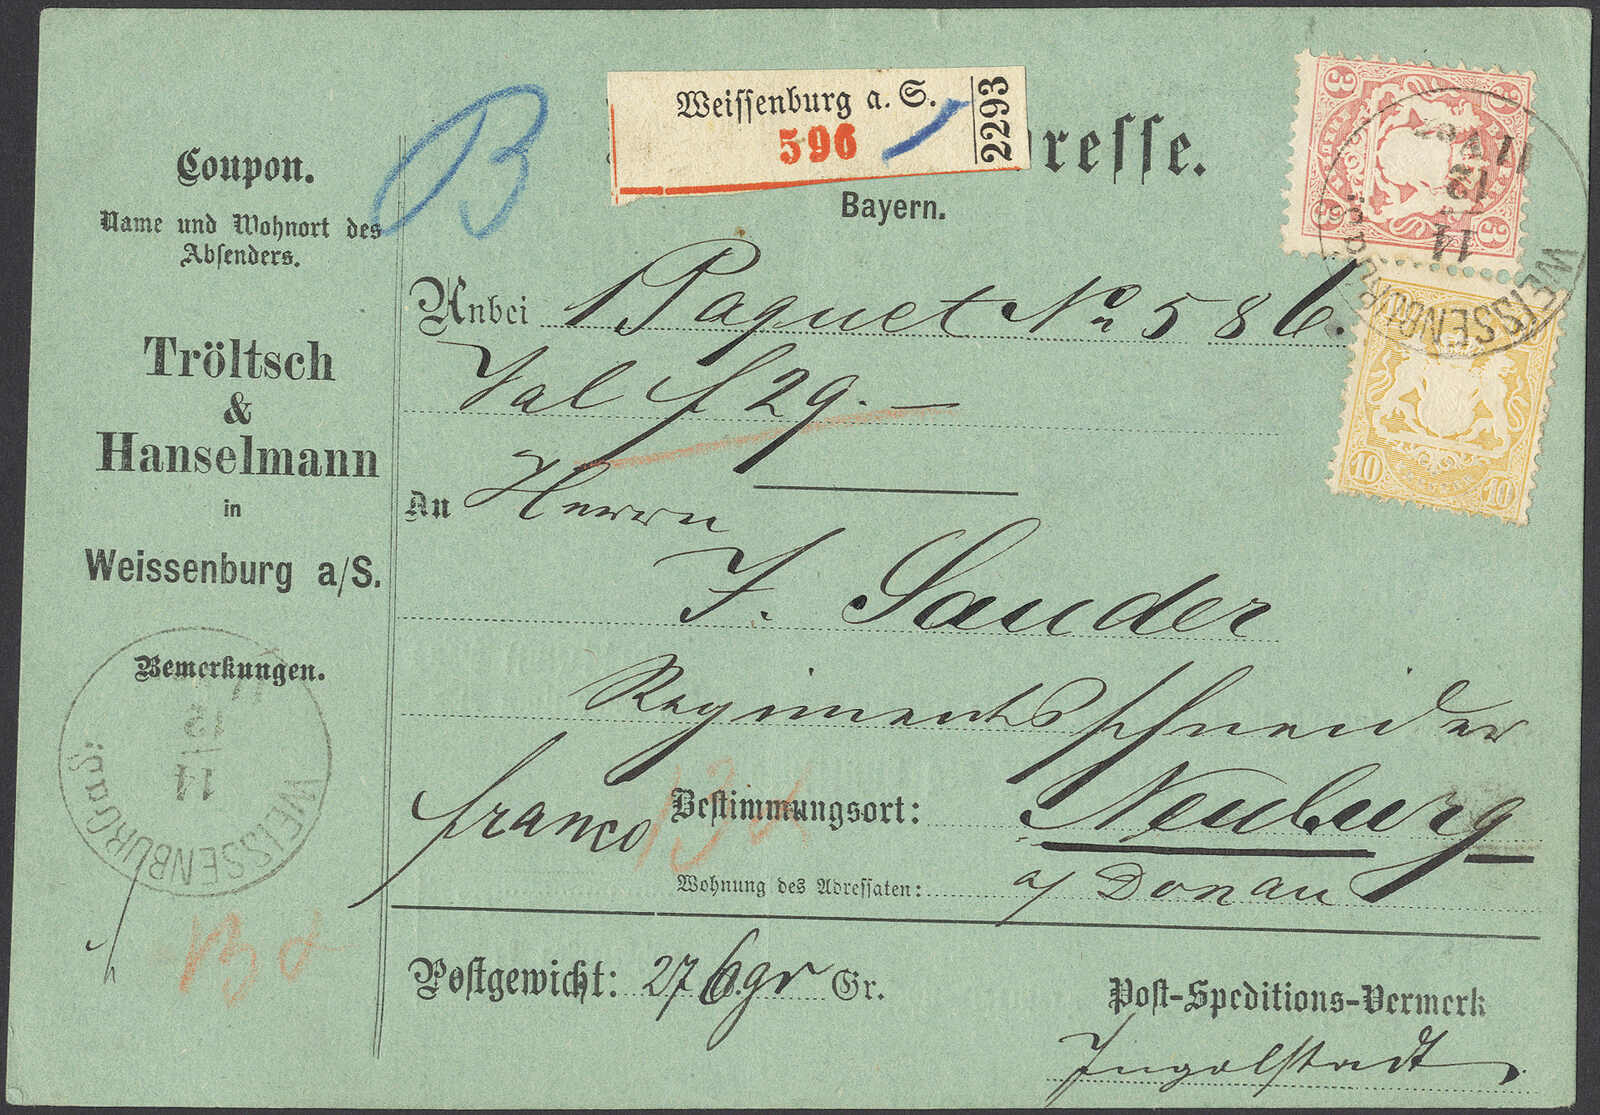 Coupon.
Name und Wohnort des
Absenders.
Tröltsch
&
Hanselmann
in
Weissenburg a/S.
Bemerkungen.
WEISSENBURG a/S.
12
11
13 x
B
Weissenburg a. S.
596
2293
resse.
Bayern.
Anbei 1 Paquet No 586.
Val f 29.—
An Herrn
F. Sauder
Regimentsschneider
franco
13 x
Bestimmungsort: Neuburg
Wohnung des Adressaten: a/ Donau
Postgewicht: 276 gr Gr.
Post-Speditions-Vermerk
Ingolstadt
3 3
3 3
WEISSENBURG a/S.
12
11
10 10